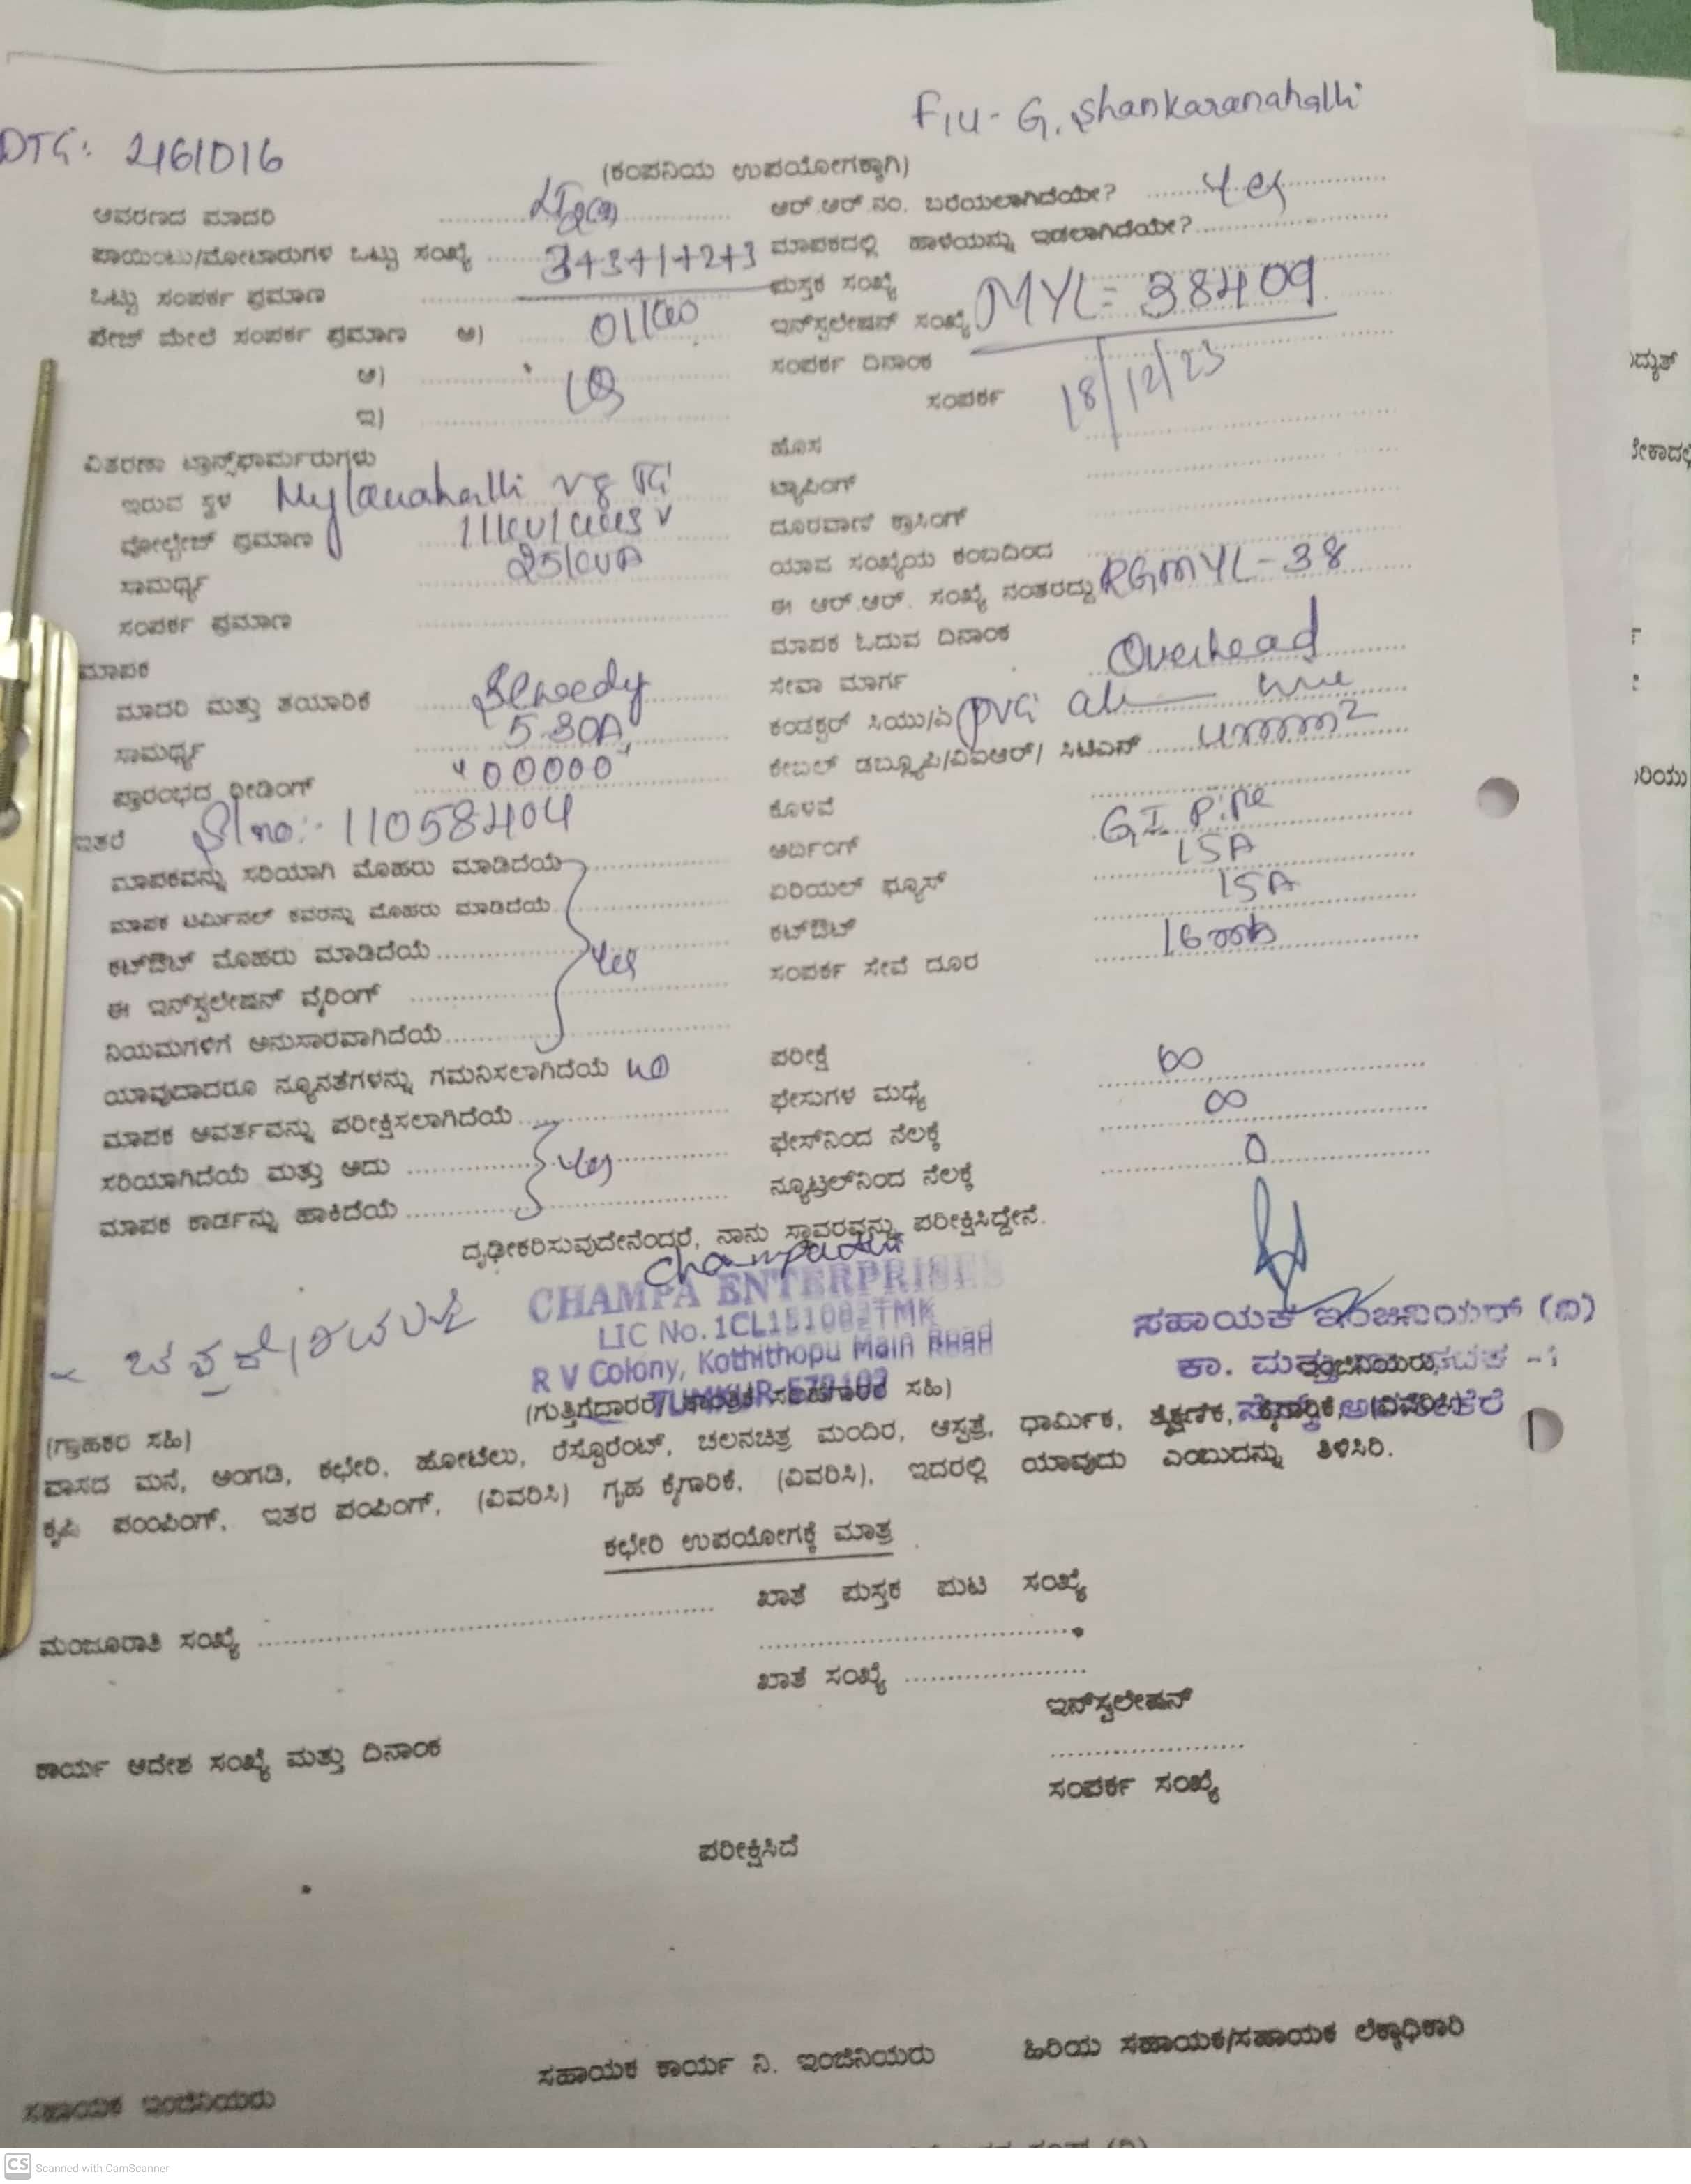 F14- G. Shankaranahalli
DTC: 2161016
(ಕಂಪನಿಯ ಉಪಯೋಗಕ್ಕಾಗಿ)
ಆವರಣದ ಮಾದರಿ LT2(a)
ಆರ್.ಆರ್.ನಂ. ಬರೆಯಲಾಗಿದೆಯೇ? Yes
ಪಾಯಿಂಟು/ಮೋಟಾರುಗಳ ಒಟ್ಟು ಸಂಖ್ಯೆ 3+3+1+2+3
ಮಾಪಕದಲ್ಲಿ ಹಾಳೆಯನ್ನು ಇಡಲಾಗಿದೆಯೇ?
ಒಟ್ಟು ಸಂಪರ್ಕ ಪ್ರಮಾಣ
ಪುಸ್ತಕ ಸಂಖ್ಯೆ
ಪೇಜ್ ಮೇಲೆ ಸಂಪರ್ಕ ಪ್ರಮಾಣ ಅ)
ಇನ್‌ಸ್ಟಲೇಷನ್ ಸಂಖ್ಯೆ MYL= 38409
ಆ)
ಸಂಪರ್ಕ ದಿನಾಂಕ 18/12/23
ಇ)
ಸಂಪರ್ಕ
ವಿತರಣಾ ಟ್ರಾನ್ಸ್‌ಫಾರ್ಮರುಗಳು
ಹೊಸ
ಇರುವ ಸ್ಥಳ Mylanahalli vg TC
ಟ್ಯಾಪಿಂಗ್
ವೋಲ್ಟೇಜ್ ಪ್ರಮಾಣ
ದೂರವಾಣಿ ಕ್ರಾಸಿಂಗ್
ಸಾಮರ್ಥ್ಯ 25KVA
ಯಾವ ಸಂಖ್ಯೆಯ ಕಂಬದಿಂದ
ಸಂಪರ್ಕ ಪ್ರಮಾಣ
ಈ ಆರ್.ಆರ್. ಸಂಖ್ಯೆ ನಂತರದ್ದು RGMYL-38
ಮಾಪಕ
ಮಾಪಕ ಓದುವ ದಿನಾಂಕ
ಮಾದರಿ ಮತ್ತು ತಯಾರಿಕೆ
ಸೇವಾ ಮಾರ್ಗ Overhead
ಸಾಮರ್ಥ್ಯ 5-30A
ಕಂಡಕ್ಟರ್ ಸಿಯು/ಎ
ಪ್ರಾರಂಭದ ರೀಡಿಂಗ್ "00000"
ಕೇಬಲ್ ಡಬ್ಲ್ಯೂಪಿ/ವಿಐಆರ್/ ಸಿಟಿಎಸ್ 4mm2
ಇತರೆ Sl no:- 11058404
ಕೊಳವೆ
ಅರ್ದಿಂಗ್ G.I Pipe
ಮಾಪಕವನ್ನು ಸರಿಯಾಗಿ ಮೊಹರು ಮಾಡಿದೆಯೆ
ಏರಿಯಲ್ ಫ್ಯೂಸ್ 15A
ಮಾಪಕ ಟರ್ಮಿನಲ್ ಕವರನ್ನು ಮೊಹರು ಮಾಡಿದೆಯೆ
ಕಟ್‌ಔಟ್ 15A
ಕಟ್‌ಔಟ್ ಮೊಹರು ಮಾಡಿದೆಯೆ Yes
ಸಂಪರ್ಕ ಸೇವೆ ದೂರ
ಈ ಇನ್‌ಸ್ಟಲೇಷನ್ ವೈರಿಂಗ್
ನಿಯಮಗಳಿಗೆ ಅನುಸಾರವಾಗಿದೆಯೆ
ಪರೀಕ್ಷೆ
ಯಾವುದಾದರೂ ನ್ಯೂನತೆಗಳನ್ನು ಗಮನಿಸಲಾಗಿದೆಯೆ no
ಫೇಸುಗಳ ಮಧ್ಯೆ ∞
ಮಾಪಕ ಆವರ್ತವನ್ನು ಪರೀಕ್ಷಿಸಲಾಗಿದೆಯೆ
ಫೇಸ್‌ನಿಂದ ನೆಲಕ್ಕೆ ∞
ಸರಿಯಾಗಿದೆಯೆ ಮತ್ತು ಅದು Yes
ನ್ಯೂಟ್ರಲ್‌ನಿಂದ ನೆಲಕ್ಕೆ 0
ಮಾಪಕ ಕಾರ್ಡನ್ನು ಹಾಕಿದೆಯೆ
ದೃಢೀಕರಿಸುವುದೇನೆಂದರೆ, ನಾನು ಸ್ಥಾವರವನ್ನು ಪರೀಕ್ಷಿಸಿದ್ದೇನೆ.
CHAMPA ENTERPRISES
LIC No.1CL151082TMK
R V Colony, Kothithopu Main Road
TUMKUR-572102
ಸಹಾಯಕ ಇಂಜಿನಿಯರ್ (ವಿ)
(ಗ್ರಾಹಕರ ಸಹಿ)
ವಾಸದ ಮನೆ, ಅಂಗಡಿ, ಕಛೇರಿ, ಹೋಟೆಲು, ರೆಸ್ಟೋರೆಂಟ್, ಚಲನಚಿತ್ರ ಮಂದಿರ, ಆಸ್ಪತ್ರೆ, ಧಾರ್ಮಿಕ, ಶೈಕ್ಷಣಿಕ, ಕೈಗಾರಿಕೆ, (ವಿವರಿಸಿ)
ಕೃಷಿ ಪಂಪಿಂಗ್, ಇತರ ಪಂಪಿಂಗ್, (ವಿವರಿಸಿ) ಗೃಹ ಕೈಗಾರಿಕೆ, (ವಿವರಿಸಿ), ಇದರಲ್ಲಿ ಯಾವುದು ಎಂಬುದನ್ನು ತಿಳಿಸಿರಿ.
ಕಛೇರಿ ಉಪಯೋಗಕ್ಕೆ ಮಾತ್ರ
ಮಂಜೂರಾತಿ ಸಂಖ್ಯೆ
ಖಾತೆ ಪುಸ್ತಕ ಪುಟ ಸಂಖ್ಯೆ
ಖಾತೆ ಸಂಖ್ಯೆ
ಇನ್‌ಸ್ಟಲೇಷನ್
ಕಾರ್ಯ ಆದೇಶ ಸಂಖ್ಯೆ ಮತ್ತು ದಿನಾಂಕ
ಸಂಪರ್ಕ ಸಂಖ್ಯೆ
ಪರೀಕ್ಷಿಸಿದೆ
ಸಹಾಯಕ ಇಂಜಿನಿಯರು
ಸಹಾಯಕ ಕಾರ್ಯ ನಿ. ಇಂಜಿನಿಯರು
ಹಿರಿಯ ಸಹಾಯಕ/ಸಹಾಯಕ ಲೆಕ್ಕಾಧಿಕಾರಿ
CS Scanned with CamScanner